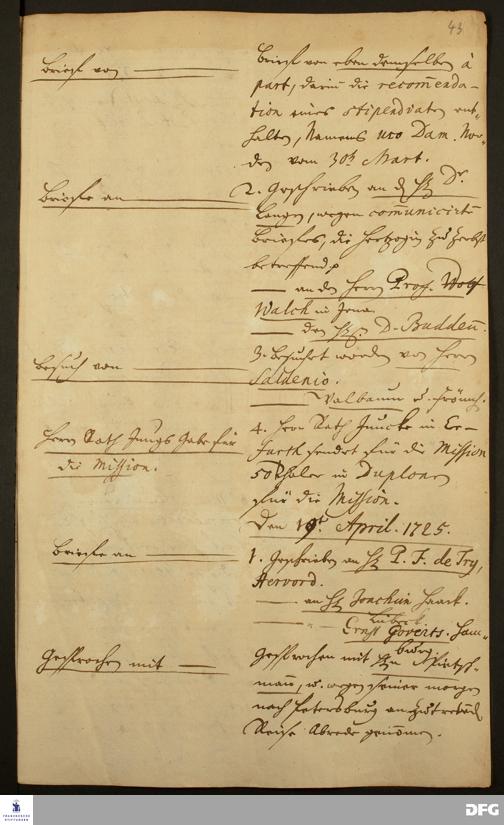 43
Brief von
Brief von eben demselben à
part, darin die recommenda-
tion eines Stipendiaten ent-
halten, Namens Uco Dam. Nor-
den vom 30t Mart.
Briefe an
2. Geschrieben an d H. Dr.
Langen, wegen communicirte
Briefes, die Hertzogin zu Zerbst
betreffend
an den Herrn Prof.
Walch in Jena.
den H. D. Buddeu.
Besuch von
3. Besuchet worden von Herrn
Saldenio.
Valbaum u.
Herrn Rath Jungs Gabe für
die Mission.
4. Herr Rath Juncke in Er-
furth sendet für die Mission
50 Thaler in Duplonen
für die Mission.
Den April. 1725.
Briefe an
1. Geschrieben an H. P. F. de Try,
Hervord.
an H. Joachim Haack.
Lübeck
Ernst Goverts. Ham-
burg
Gesprochen mit
Gesprochen mit
mann, u. wegen seiner morgen
nach Petersburg anzutretenden
Reise Abrede genommen.
FRANCKESCHE
STIFTUNGEN
DFG